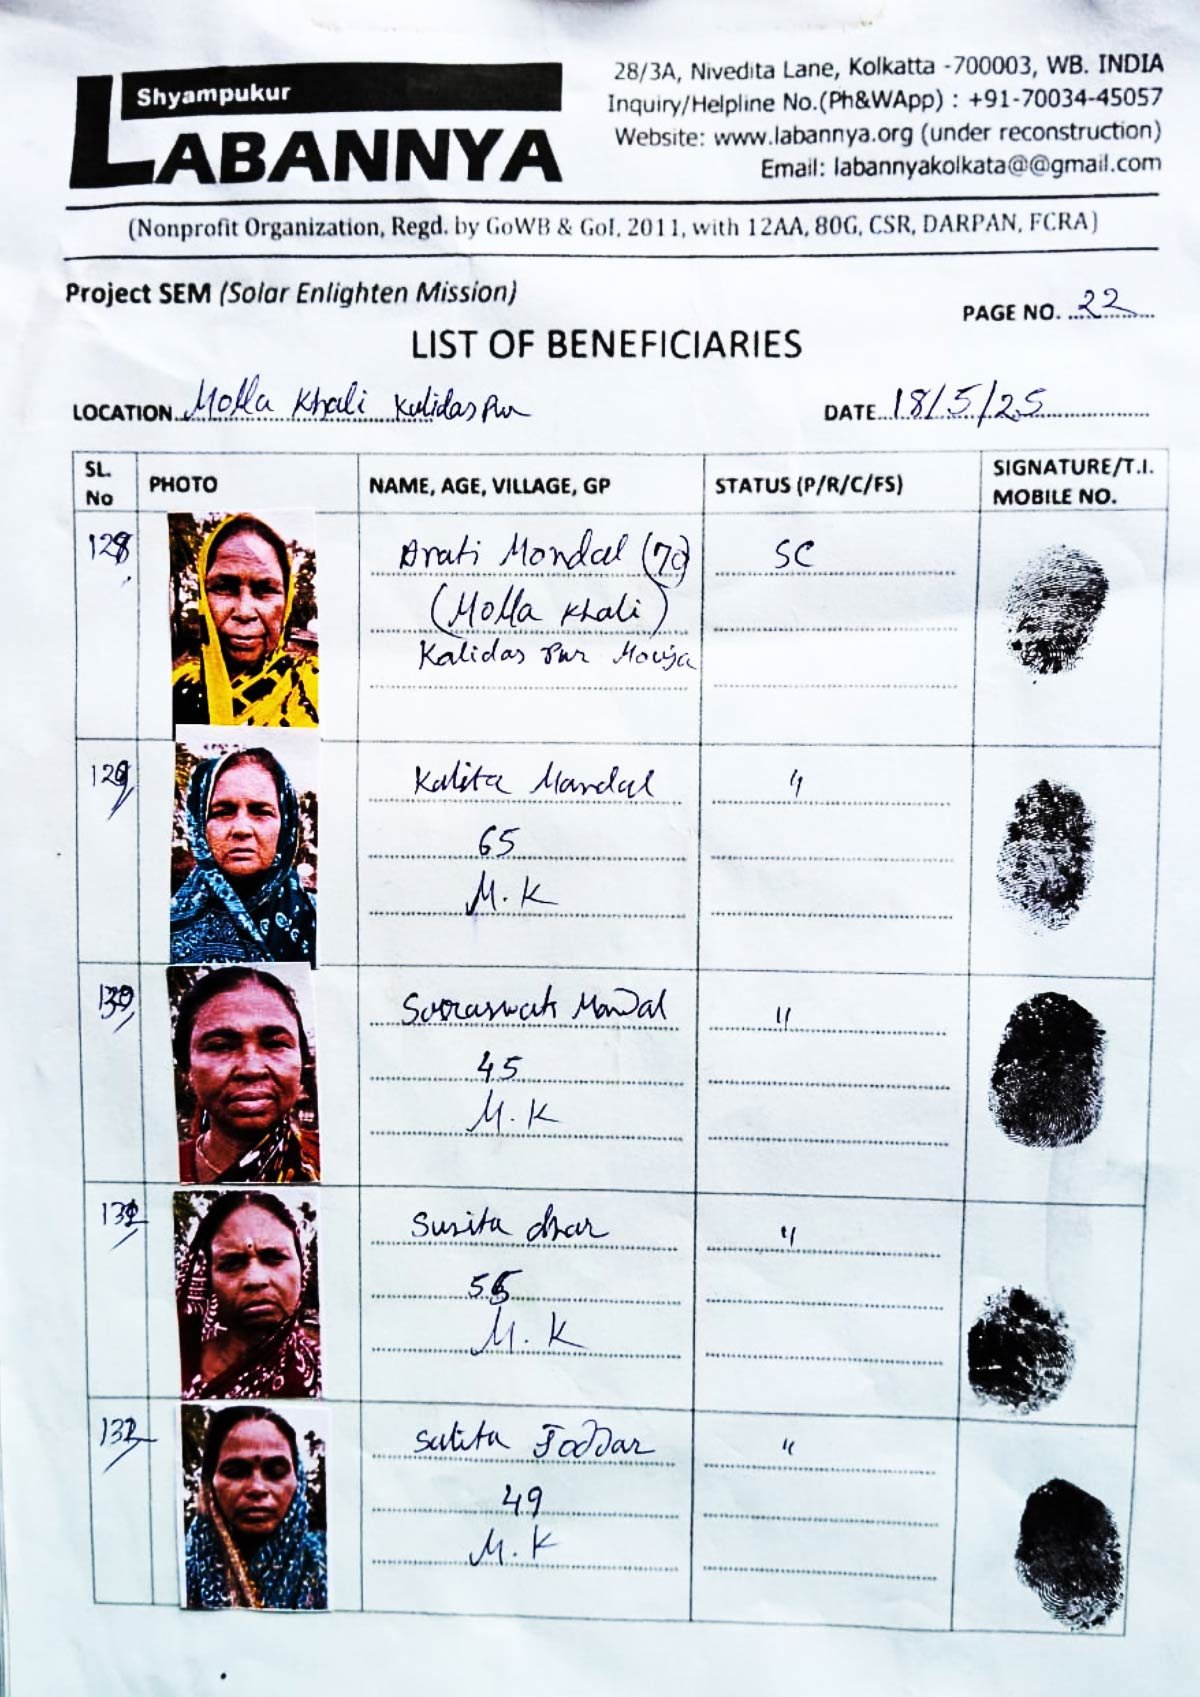 Shyampukur
LABANNYA
28/3A, Nivedita Lane, Kolkatta -700003, WB. INDIA
Inquiry/Helpline No.(Ph&WApp) : +91-70034-45057
Website: www.labannya.org (under reconstruction)
Email: labannyakolkata@@gmail.com
(Nonprofit Organization, Regd. by GoWB & GoI, 2011, with 12AA, 80G, CSR, DARPAN, FCRA)
Project SEM (Solar Enlighten Mission)
PAGE NO. 22
LIST OF BENEFICIARIES
LOCATION Molla Khali Kalidas Pur
DATE 18/5/25
SL. No PHOTO NAME, AGE, VILLAGE, GP STATUS (P/R/C/FS) SIGNATURE/T.I. MOBILE NO.
128 Arati Mondal (70) SC
(Molla Khali)
Kalidas Pur Mouja
129 Kalita Mandal "
65
M.K
130 Mondal "
45
M.K
131 Sunita "
55
M.K
132 Salita "
49
M.K